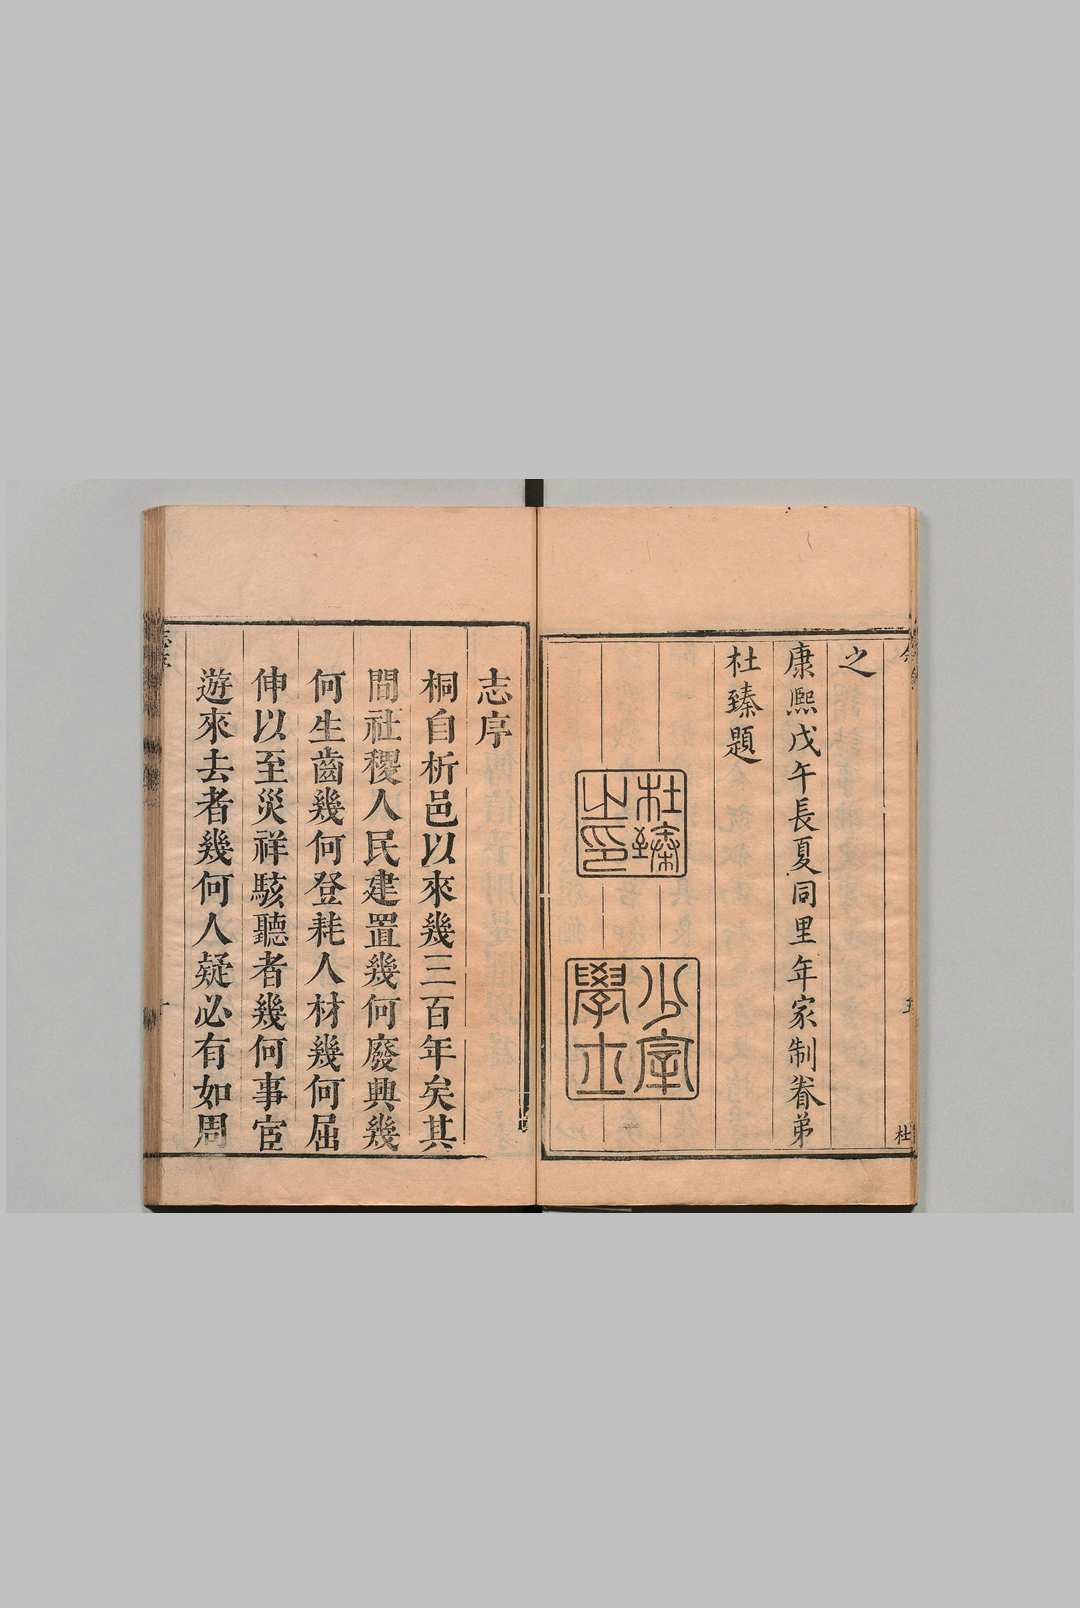 之
康熙戊午長夏同里年家制眷弟
杜臻題
杜臻
之印
少宰
學士
杜
志序
桐自析邑以來幾三百年矣其
間社稷人民建置幾何廢興幾
何生齒幾何登耗人材幾何屈
伸以至災祥駭聽者幾何事宦
遊來去者幾何人疑必有如周